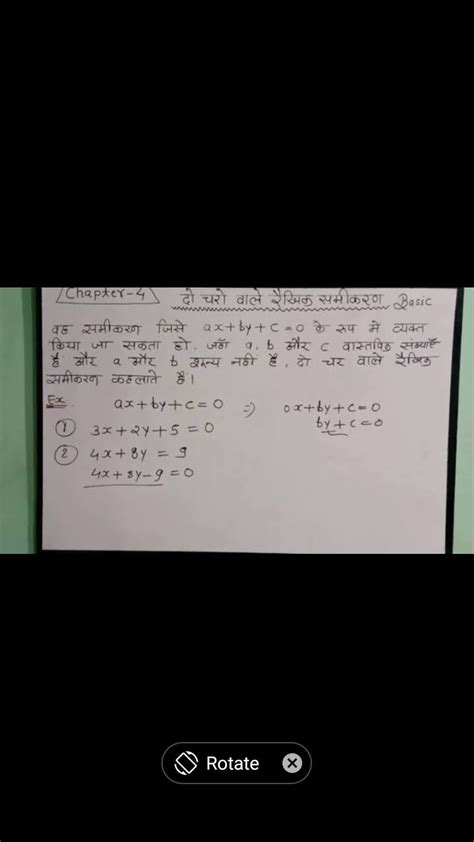 Chapter-4 दो चरो वाले रैखिक समीकरण Basic
वह समीकरण जिसे ax+by+c=0 के रूप मे व्यक्त
किया जा सकता हो. जहाँ a, b और c वास्तविक संख्याएँ
हैं और a और b शून्य नहीं है, दो चर वाले रैखिक
समीकरण कहलाते हैं।
Ex. ax+by+c=0 => 0x+by+c=0
① 3x+2y+5=0 by+c=0
② 4x+8y = 9
4x+8y-9=0
Rotate